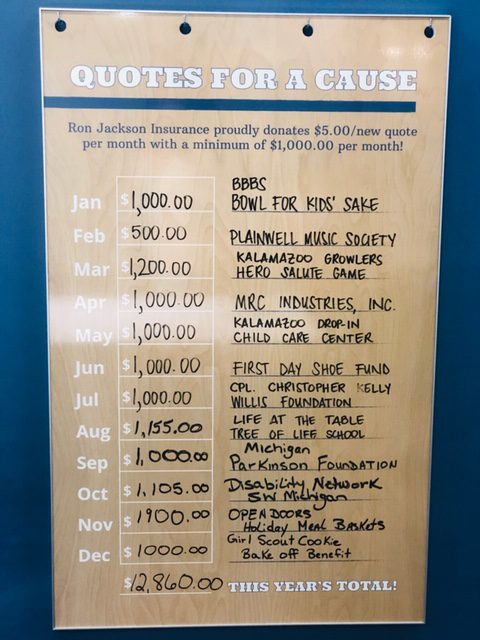 QUOTES FOR A CAUSE
Ron Jackson Insurance proudly donates $5.00/new quote
per month with a minimum of $1,000.00 per month!
BBBS
Jan $1,000.00 BOWL FOR KIDS' SAKE
Feb $500.00 PLAINWELL MUSIC SOCIETY
KALAMAZOO GROWLERS
Mar $1,200.00 HERO SALUTE GAME
Apr $1,000.00 MRC INDUSTRIES, INC.
KALAMAZOO DROP-IN
May $1,000.00 CHILD CARE CENTER
Jun $1,000.00 FIRST DAY SHOE FUND
CPL. CHRISTOPHER KELLY
Jul $1,000.00 WILLIS FOUNDATION
LIFE AT THE TABLE
Aug $1,155.00 TREE OF LIFE SCHOOL
Michigan
Sep $1,000.00 Parkinson Foundation
Disability Network
Oct $1,105.00 SW Michigan
OPEN DOORS
Nov $1900.00 Holiday Meal Baskets
Girl Scout Cookie
Dec $1000.00 Bake off Benefit
$12,860.00 THIS YEAR'S TOTAL!